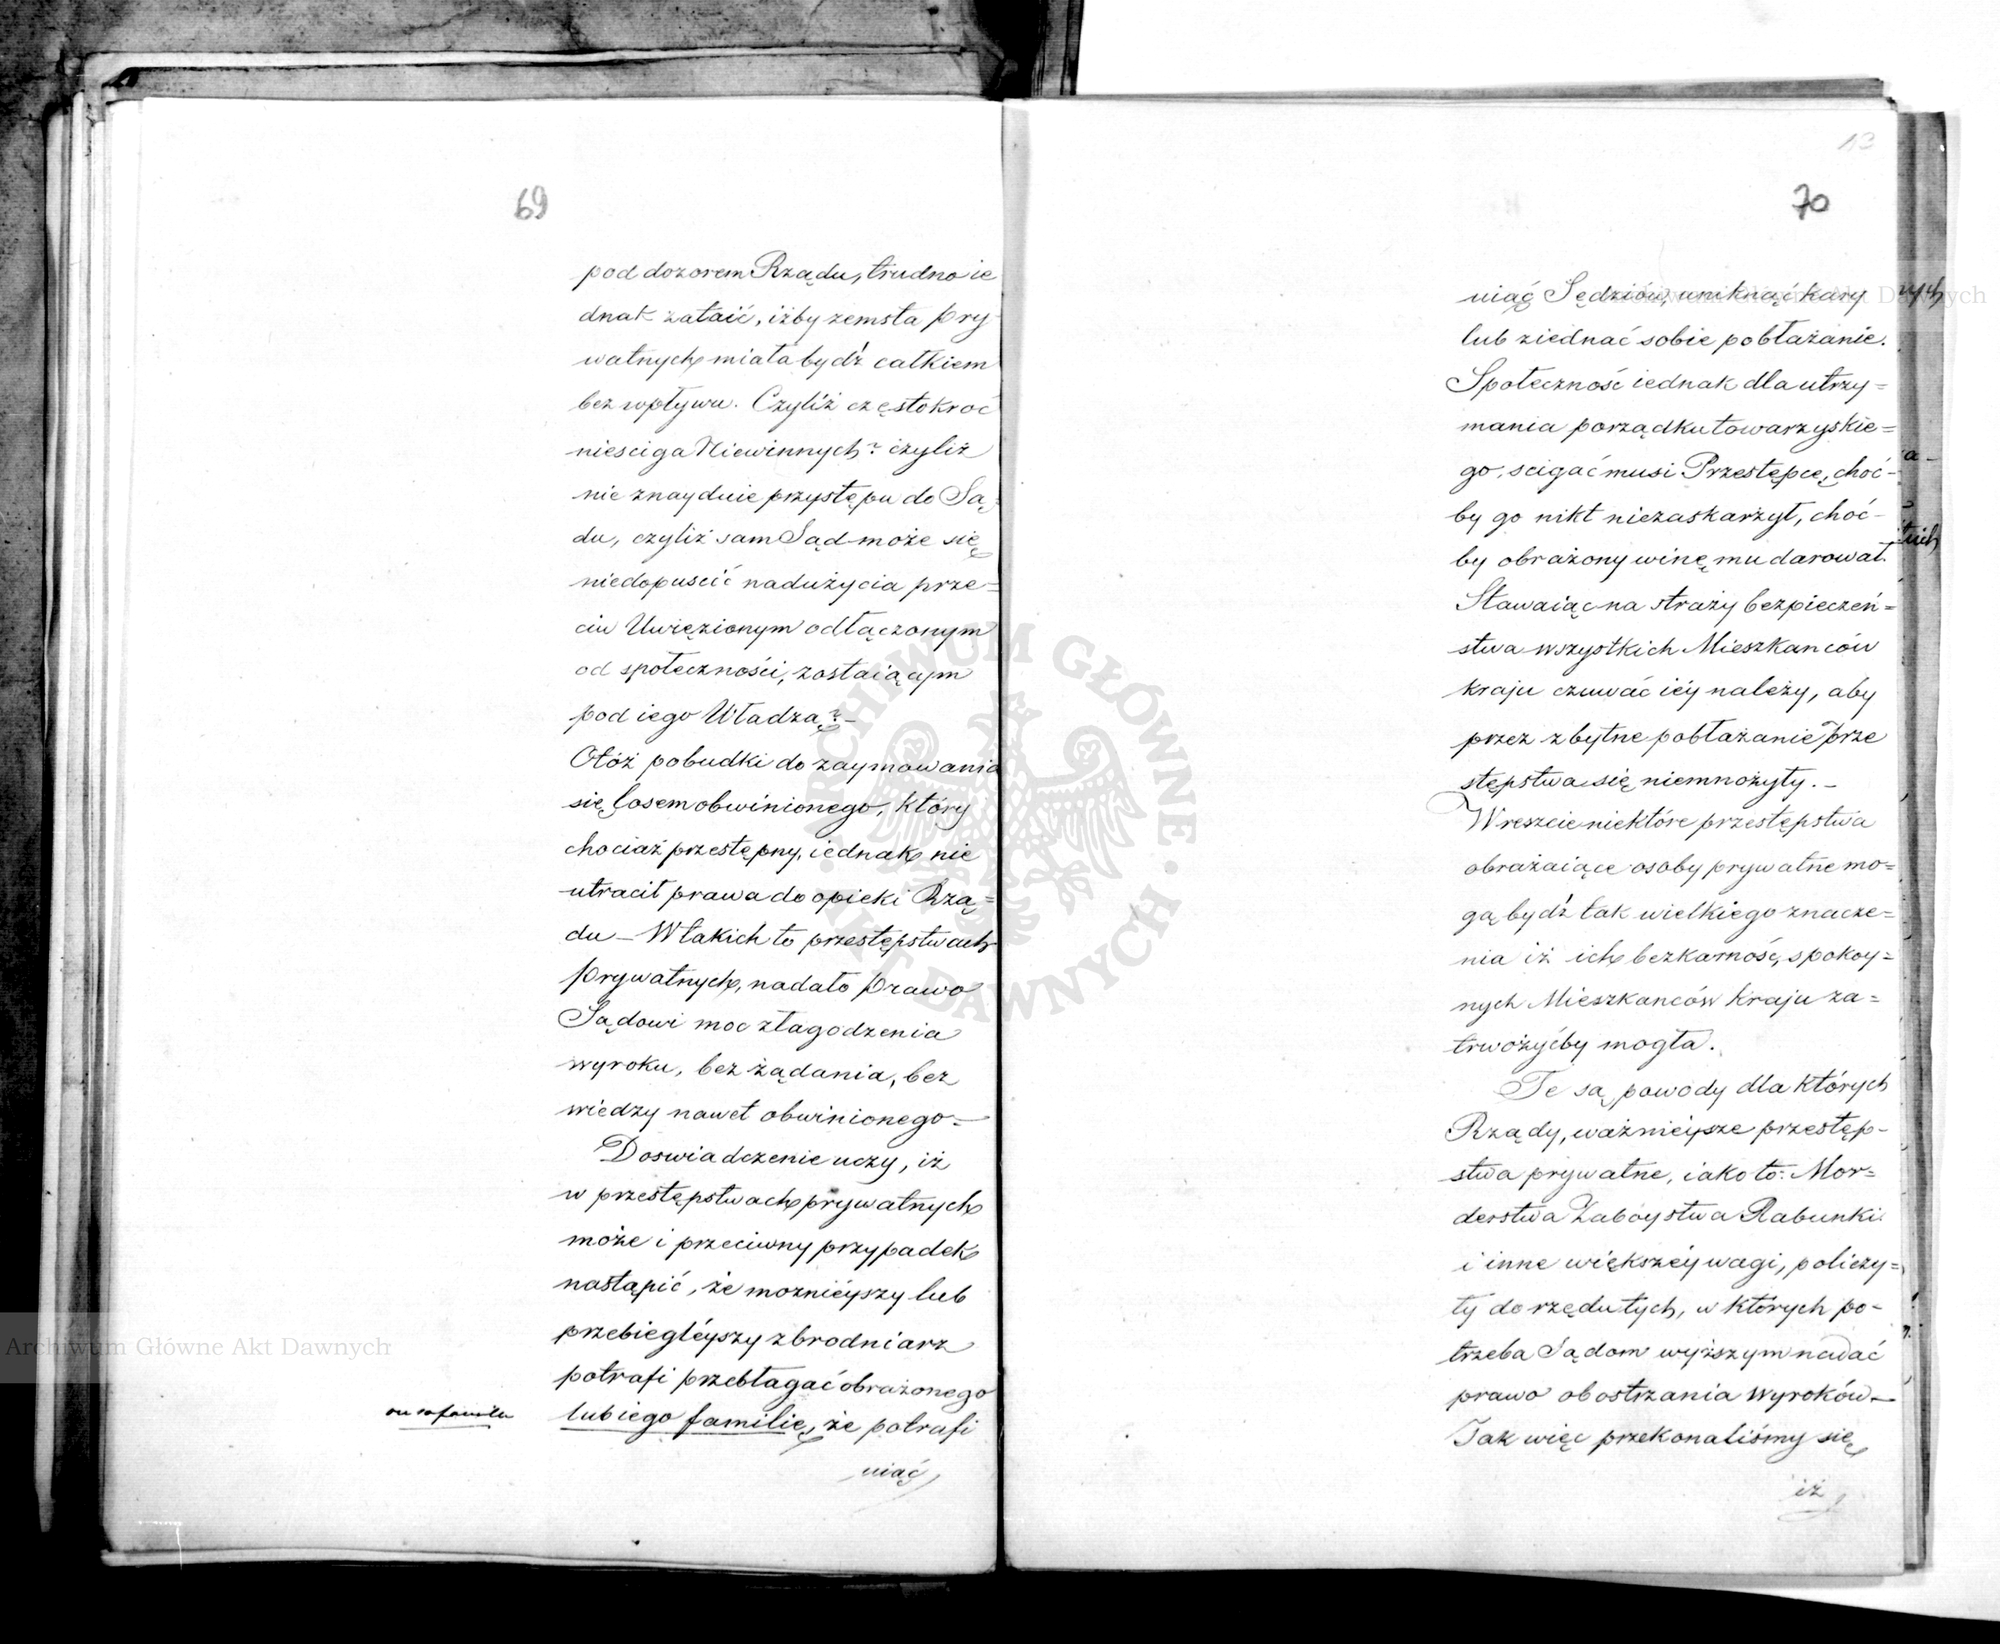 69
pod dozorem Rządu, trudno ie
dnak zataić, iżby zemsta pry
watnych miała bydź całkiem
bez wpływu. Czyliż częstokroć
niesciga Niewinnych? czyliż
nie znayduie przystępu do Są=
du, czyliż sam Sąd może się
niedopuscić nadużycia prze=
ciw Uwięzionym odłączonym
od społeczności, zostaiącym
pod iego Władzą? –
Otóż pobudki do zaymowania
się losem obwinionego, który
chociaż przestępny, iednak nie
utracił prawa do opieki Rzą=
du – W takich to przestępstwach
prywatnych, nadało prawo
Sądowi moc złagodzenia
wyroku, bez żądania, bez
wiedzy nawet obwinionego –
Doswiadczenie uczy, iż
w przestępstwach prywatnych
może i przeciwny przypadek
nastąpić, że moznieyszy lub
przebiegléyszy zbrodniarz
potrafi przebłagać obrażonego
lub iego familię, że potrafi
uiąć
13
70
uiąć Sędziów, uniknąć kary
lub ziednać sobie pobłażanie.
Społeczność iednak dla utrzy=
mania porządku towarzyskie=
go, scigać musi Przestępcę, choć-
by go nikt niezaskarżył, choć-
by obrażony winę mu darował.
Stawaiąc na straży bezpieczeń=
stwa wszystkich Mieszkanców
kraju czuwać iéy należy, aby
przez zbytne pobłażanie prze
stępstwa się niemnożyły. –
Wreszcie niektóre przestępstwa
obrażaiące osoby prywatne mo=
gą bydź tak wielkiego znacze=
nia iż ich bezkarność, spokoy=
nych Mieszkanców kraju za=
trwożyćby mogła.
Te są powody dla których
Rządy, ważnieysze przestęp-
stwa prywatne, iako to: Mor=
derstwa Zabóystwa Rabunki
i inne większéy wagi, policzy=
ły do rzędu tych, w których po-
trzeba Sądom wyższym nadać
prawo obostrzania wyroków –
Jak więc przekonaliśmy się
iż
Archiwum Główne Akt Dawnych
ARCHIWUM GŁÓWNE AKT DAWNYCH